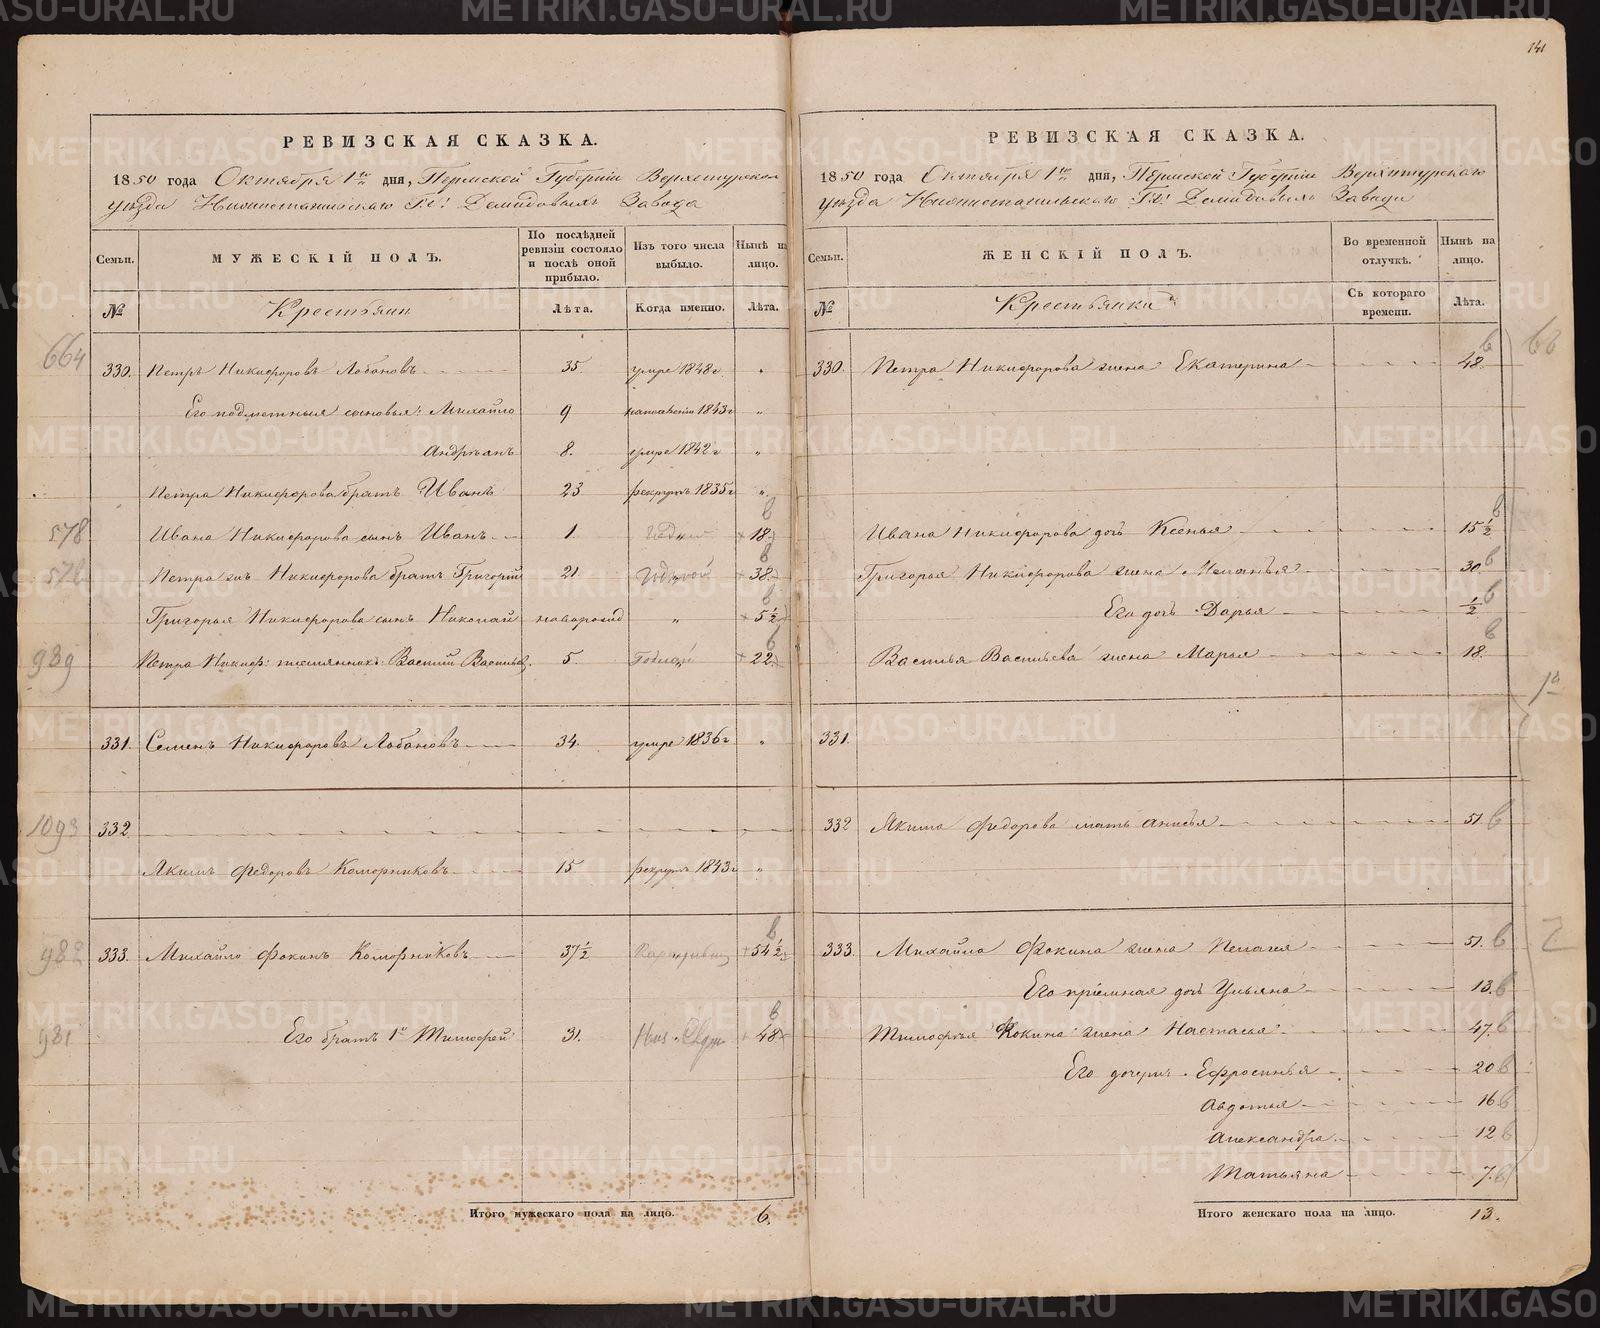 141
РЕВИЗСКАЯ СКАЗКА.
1850 года Октября 1го дня, Пермской Губерніи Верхотурскаго
уѣзда Нижнетагильскаго Гг: Демидовыхъ Завода
Семьи.
МУЖЕСКІЙ ПОЛЪ.
По послѣдней ревизіи состояло и послѣ оной прибыло.
Изъ того числа выбыло.
Нынѣ на лицо.
№
Крестьяни
Лѣта.
Когда именно.
Лѣта.
664
330. Петръ Никифоровъ Лобановъ 35 умре 1848 г „
Его подметныя сыновья: Михайло 9 1843 г „
Андреянъ 8. умре 1842 г „
Петра Никифорова братъ Иванъ 23 рекрутъ 1835 г „
578 Ивана Никифорова сынъ Иванъ 1. +18 в
576 Петра жъ Никифорова братъ Григорій 21. Годной +38 в
Григорья Никифорова сынъ Николай новорожд „ +5½ в
989 Петра Никиф: племянникъ Василій Васильев. 5. +22 в
331. Семенъ Никифоровъ Лобановъ 34. умре 1836 г „
1093 332
Якимъ Федоровъ Коморниковъ 15 рекрутъ 1843 г „
982 333. Михайло Фокинъ Коморниковъ 37½ +54½ в
981 Его братъ 1й Тимофей 31. +48 в
Итого мужескаго пола на лицо. 6.
РЕВИЗСКАЯ СКАЗКА.
1850 года Октября 1го дня, Пермской Губерніи Верхотурскаго
уѣзда Нижнетагильскаго Гг: Демидовыхъ Завода
Семьи.
ЖЕНСКІЙ ПОЛЪ.
Во временной отлучкѣ.
Нынѣ на лицо.
№
Крестьянки
Съ котораго времени.
Лѣта.
330. Петра Никифорова жена Екатерина 48. в
Ивана Никифорова дочь Ксенья 15½ в
Григорья Никифорова жена Меланья 30 в
Его дочь Дарья ½ в
Василья Васильева жена Марья 18. в
331.
332 Якима Федорова мать Анисья 51. в
333. Михайла Фокина жена Пелагея 51. в
Его пріемная дочь Ульяна 13. в
Тимофея Фокина жена Настасья 47. в
Его дочери Ефросинья 20 в
Авдотья 16 в
Александра 12 в
Татьяна 7. в
Итого женскаго пола на лицо. 13.
METRIKI.GASO-URAL.RU